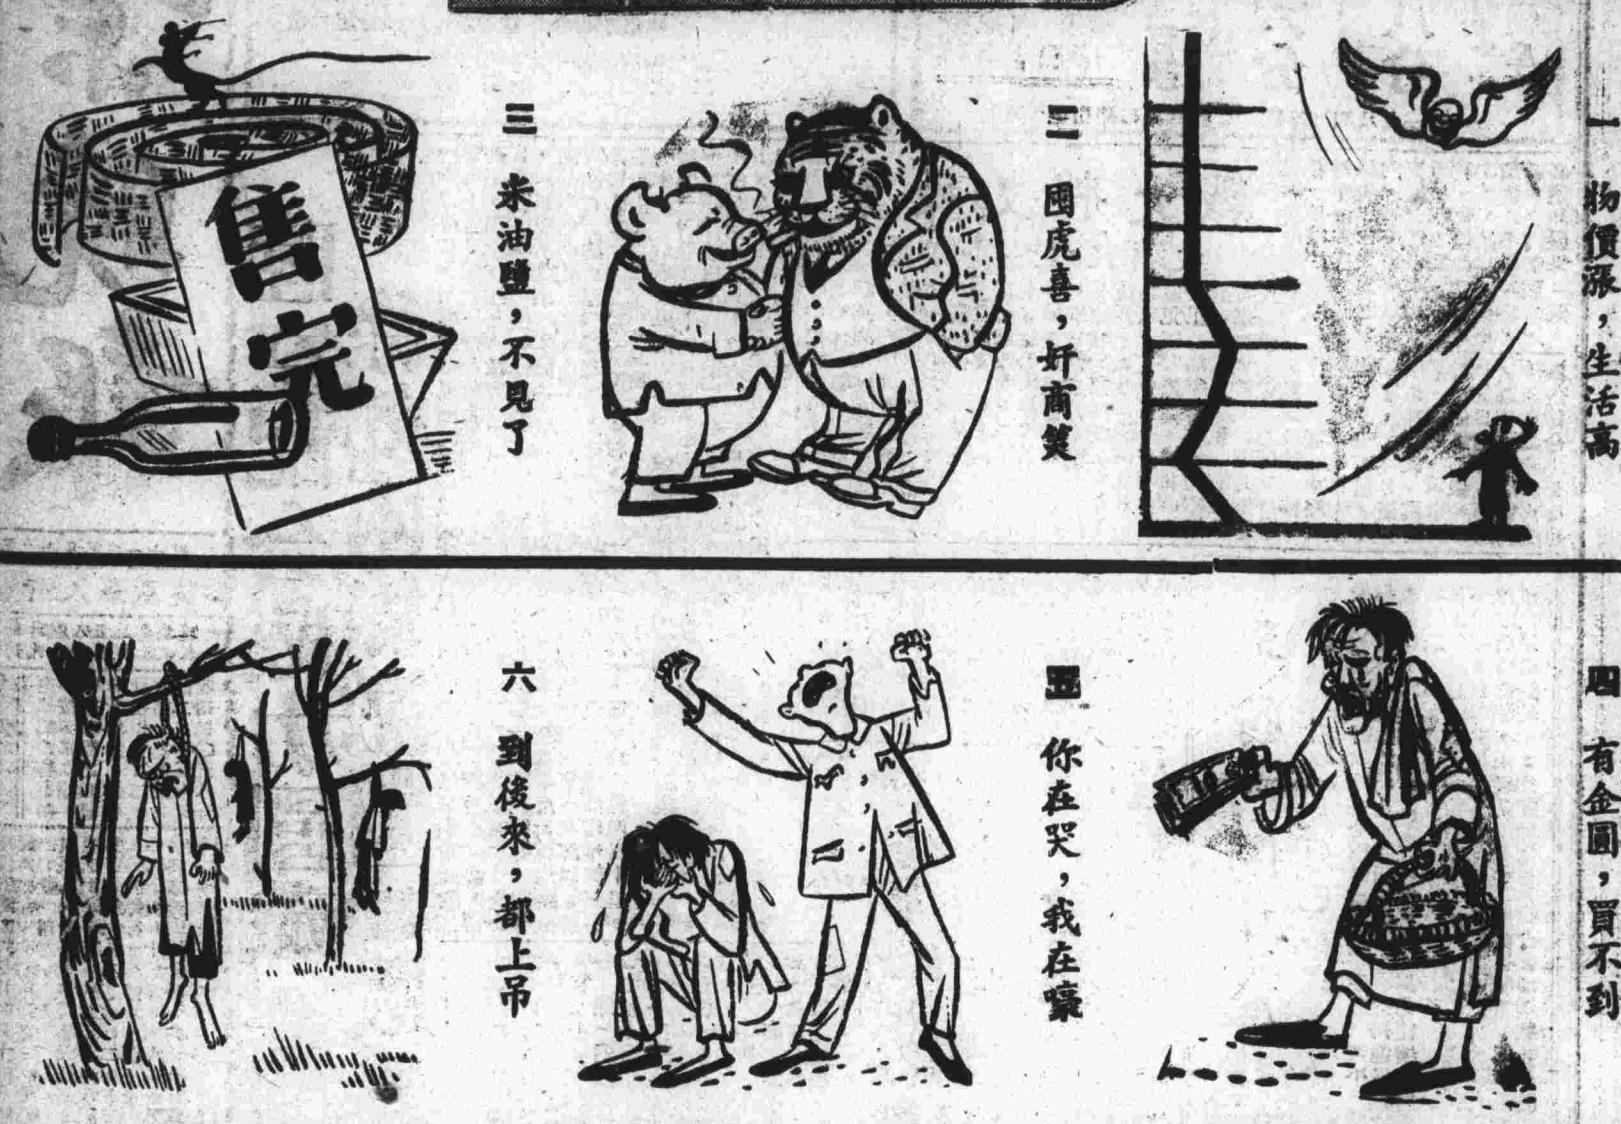 一 物價漲，生活高
二 囤虎喜，奸商笑
三 米油鹽，不見了
售完
四 有金圓，買不到
五 你在哭，我在嚎
六 到後來，都上吊